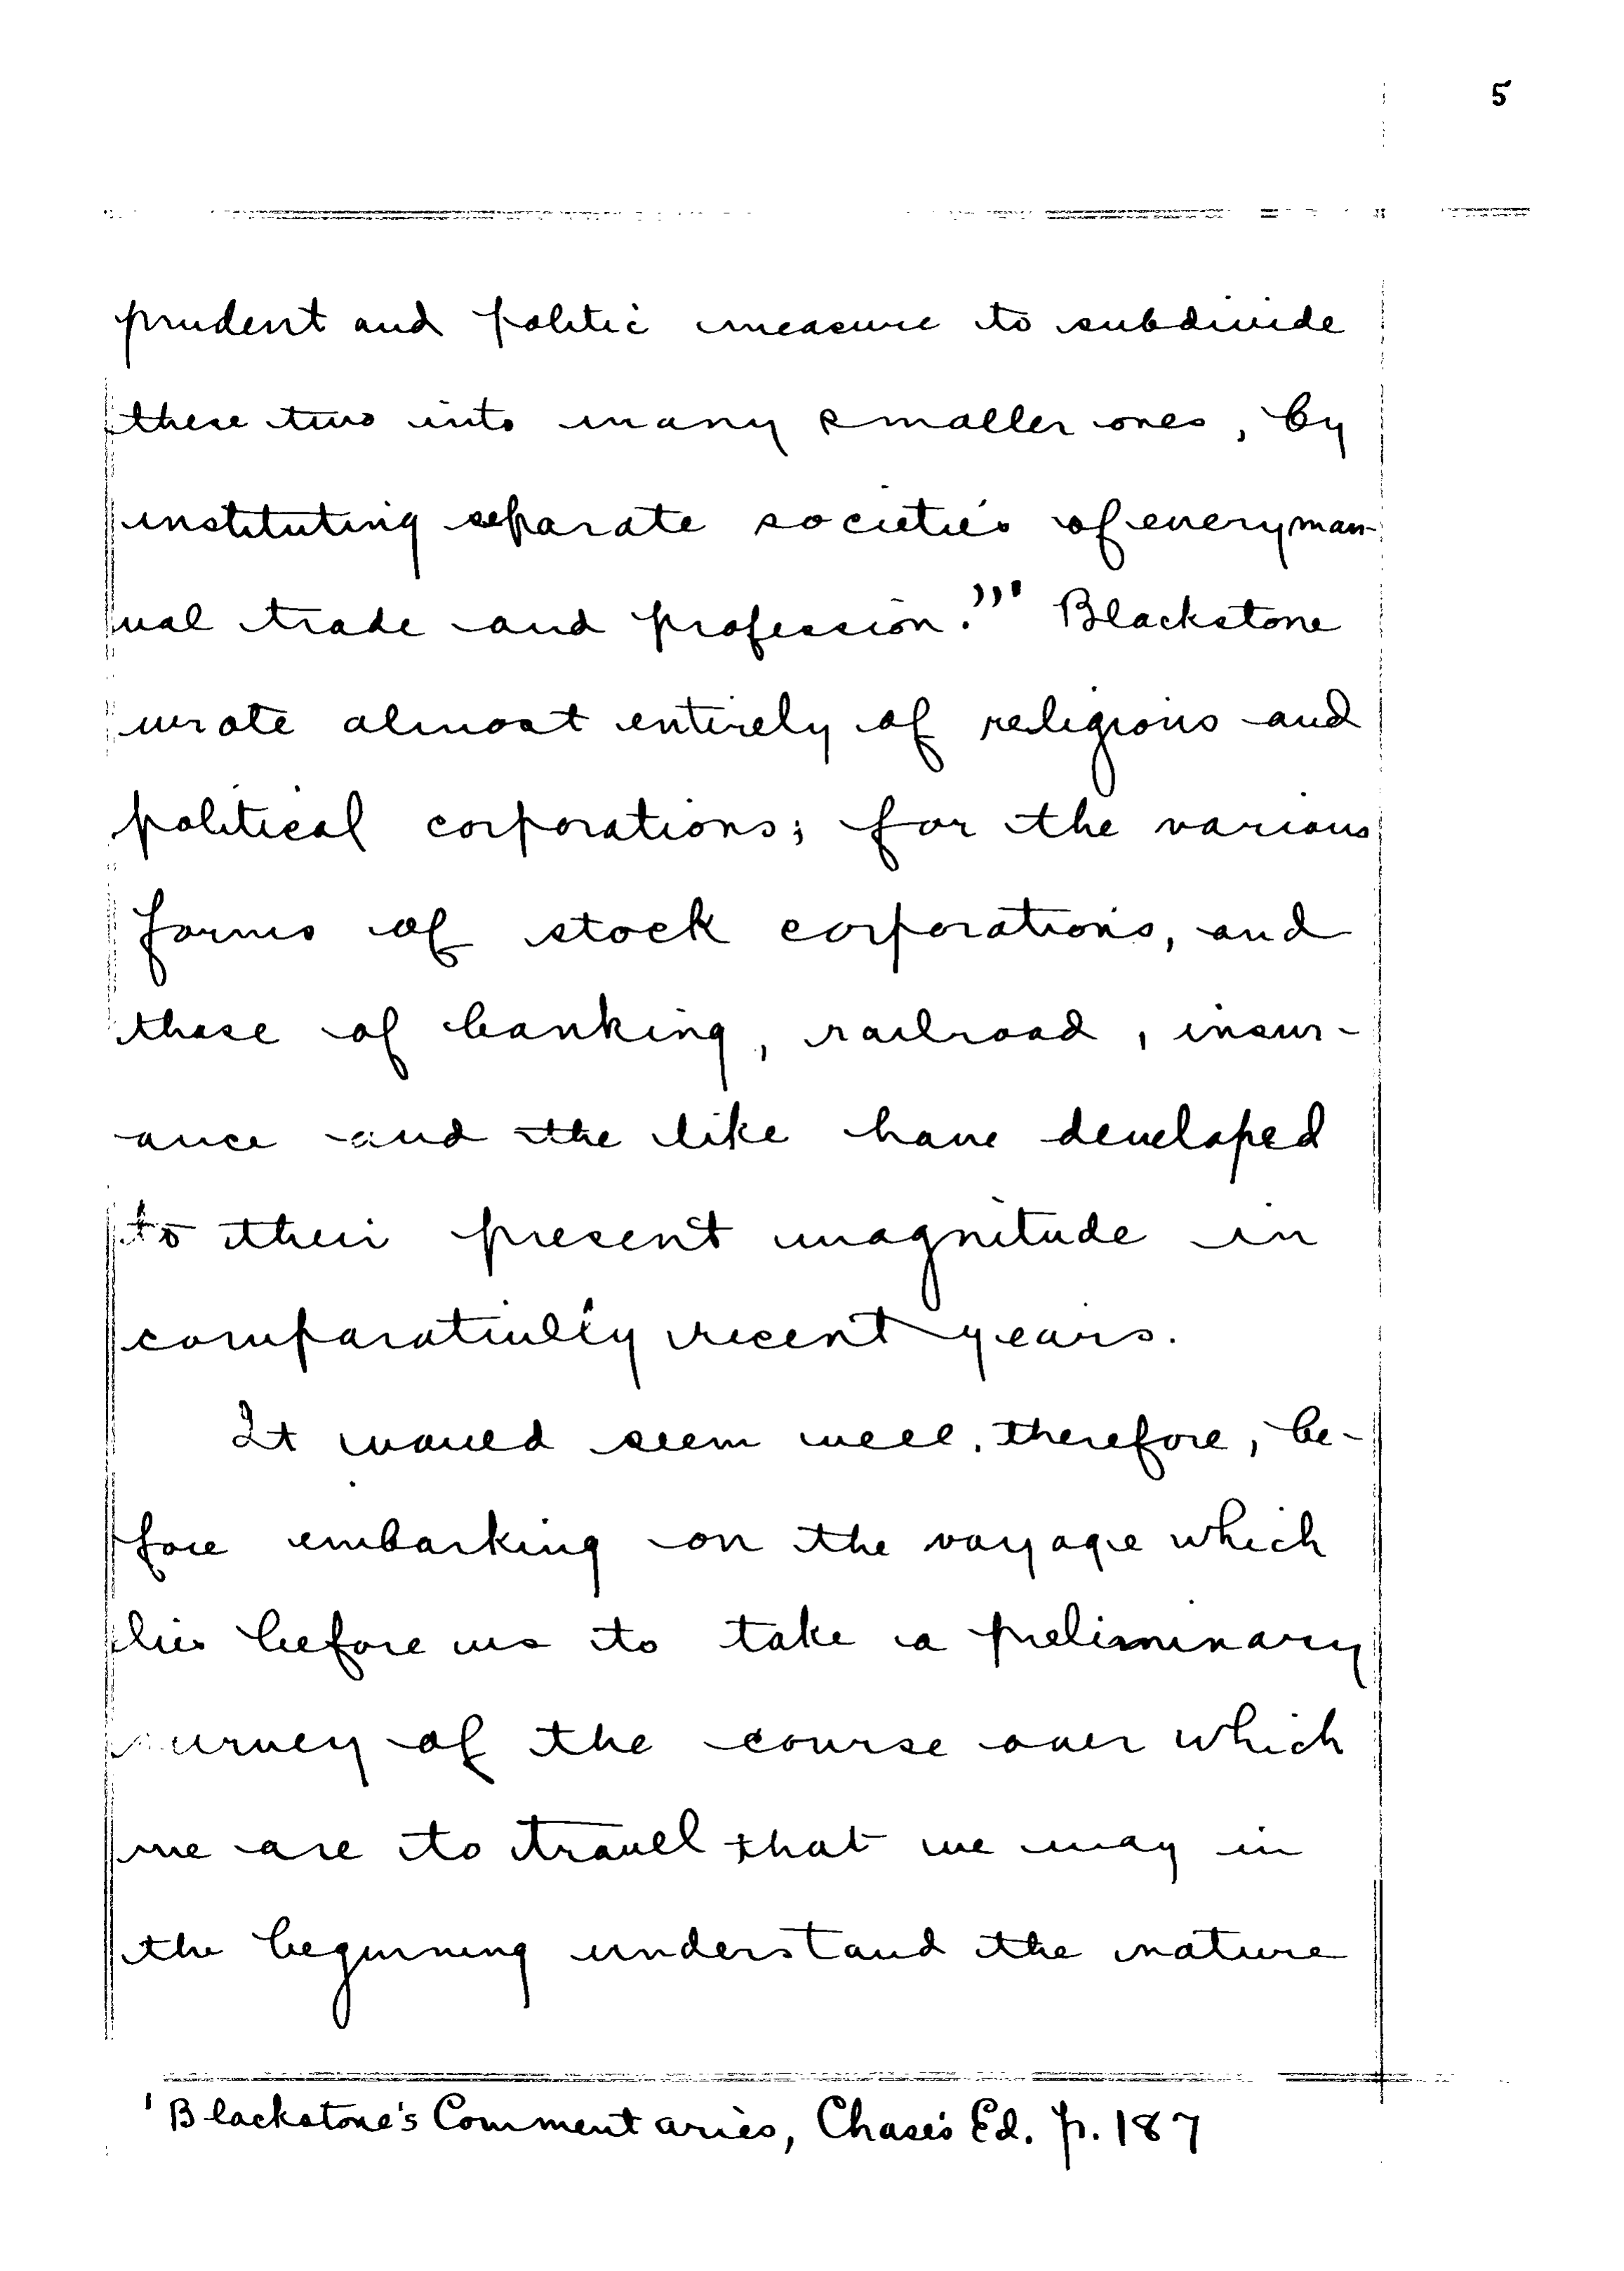 5
prudent and politic measure to subdivide
these two into many smaller ones, by
instituting separate societies of every man-
ual trade and profession."¹ Blackstone
wrote almost entirely of religious and
political corporations; for the various
forms of stock corporations, and
those of banking, railroad, insur-
ance and the like have developed
to their present magnitude in
comparatively recent years.
It would seem well, therefore, be-
fore embarking on the voyage which
lies before us to take a preliminary
survey of the course over which
we are to travel that we may in
the beginning understand the nature
¹ Blackstone's Commentaries, Chase's Ed. p. 187